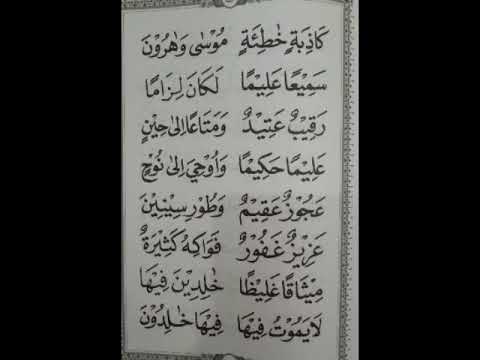 كَاذِبَةٍ خَٰطِئَةٍ مُوْسٰى وَهٰرُوْنَ
سَمِيْعًا عَلِيْمًا لَكَانَ لِزَامًا
رَقِيْبٌ عَتِيْدٌ وَمَتَاعًا اِلٰى حِيْنٍ
عَلِيْمًا حَكِيْمًا وَاُوْحِيَ اِلٰى نُوْحٍ
عَجُوْزٌ عَقِيْمٌ وَطُوْرِ سِيْنِيْنَ
عَزِيْزٌ غَفُوْرٌ فَوَاكِهُ كَثِيْرَةٌ
مِيْثَاقًا غَلِيْظًا خٰلِدِيْنَ فِيْهَا
لَايَمُوْتُ فِيْهَا فِيْهَا خٰلِدُوْنَ